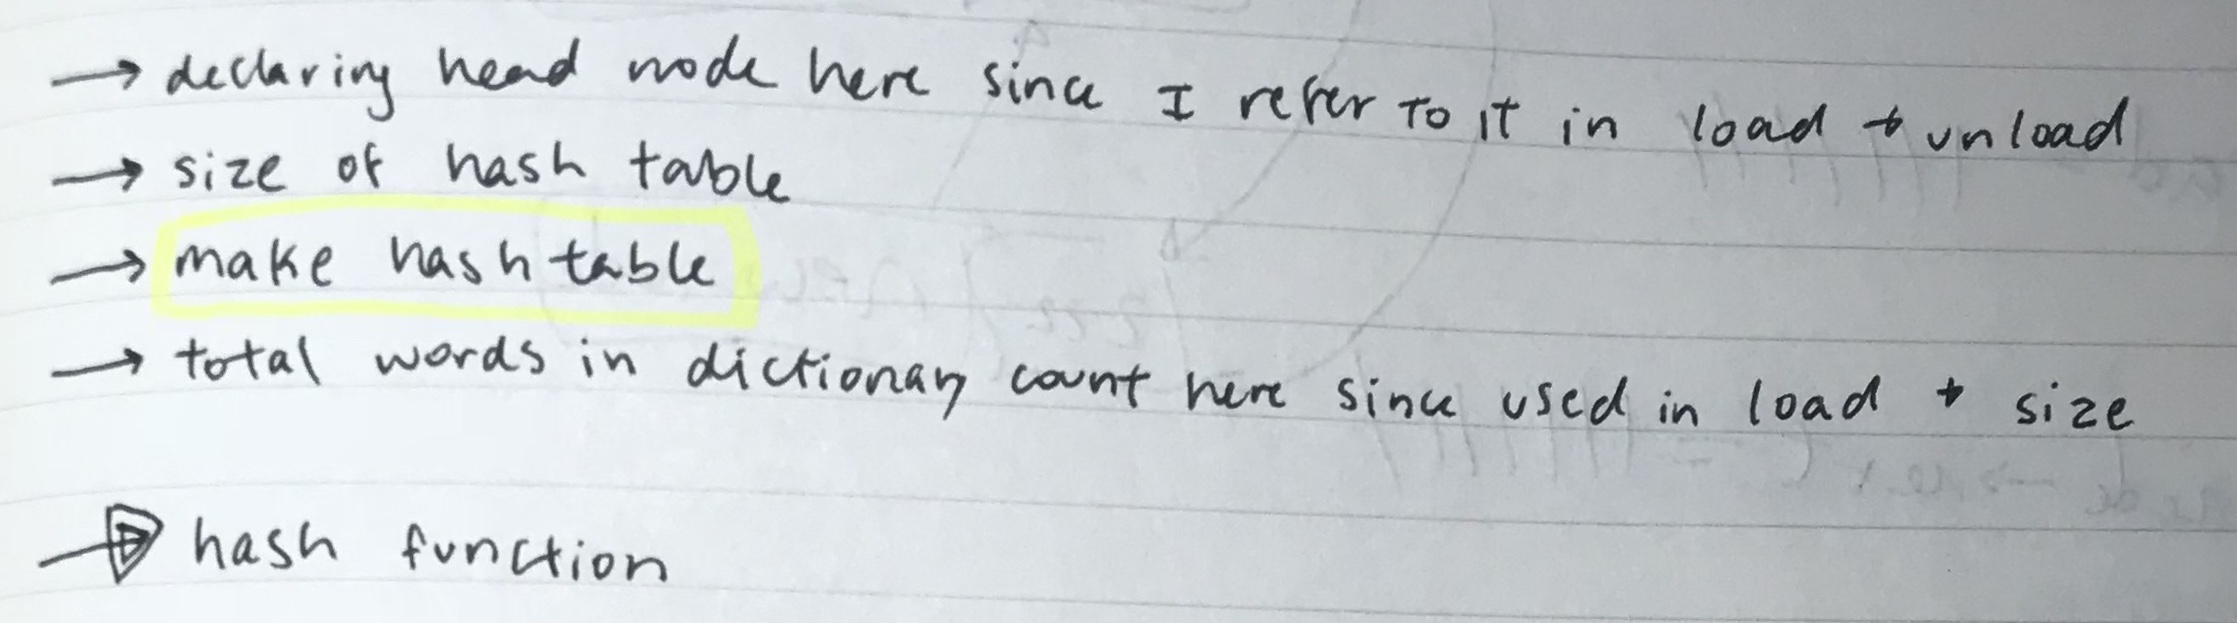 → declaring head node here since I refer to it in load + unload
→ size of hash table
→ make hash table
→ total words in dictionary count here since used in load + size
→ hash function